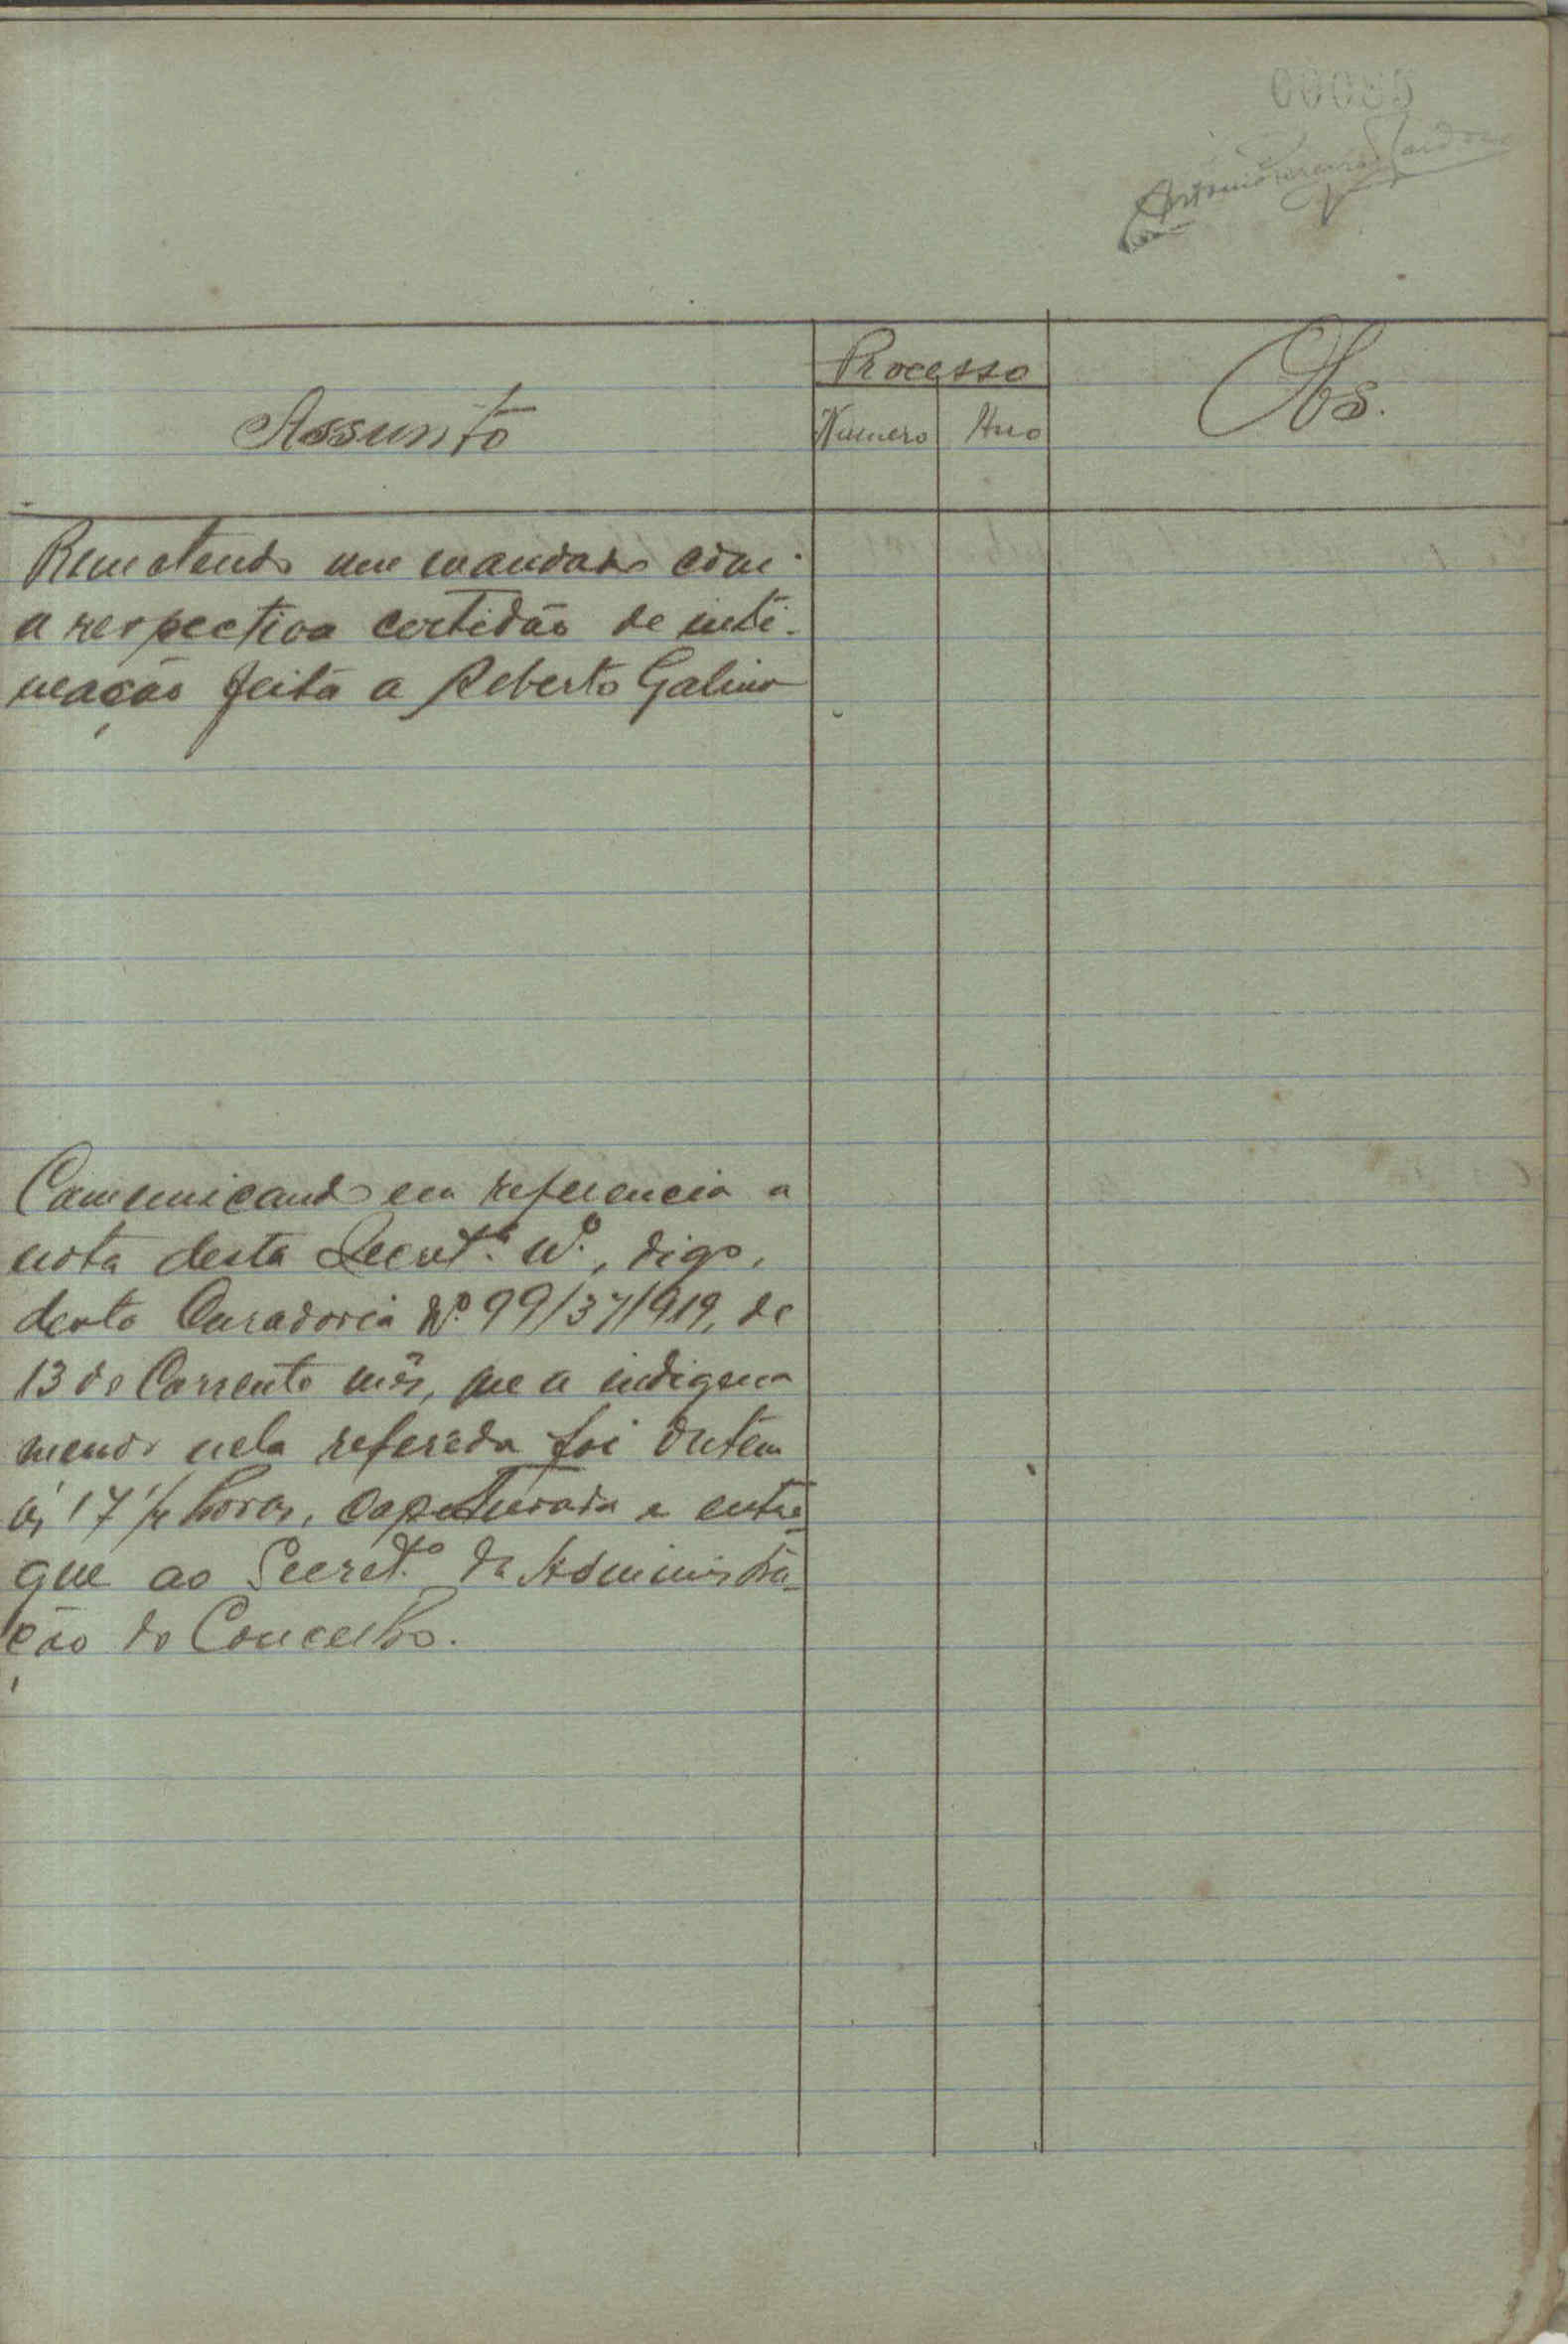 00085
Antonio Pereira Cardoso
Assunto
Processo
Numero Ano
Obs.
Remetendo um mandado com
a respectiva certidão de inti-
mação feita a Roberto Galino
Comunicando em referencia a
nota desta Secret.ª Nº, digo,
desta Curadoria Nº 99/37/919, de
13 do Corrente mês, que a indigena
menor nela referida foi ontem
ás 17 ½ horas, capturada e entre-
gue ao Secret.º da Administra-
ção do Concelho.